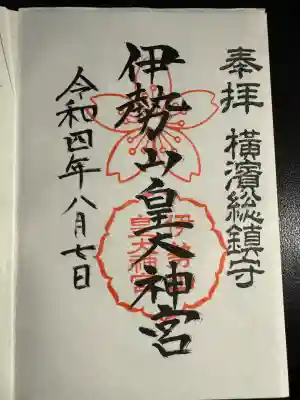 奉拝 横濱総鎮守
伊勢山皇大神宮
伊勢山
皇大神宮
令和四年八月七日